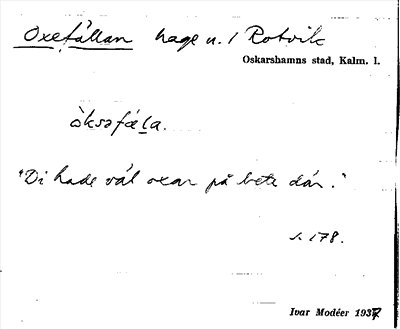 Oxefällan hage u. / Rotvik
Oskarshamns stad, Kalm. l.
òksəfæla.
"Di hade väl oxar på bete där."
s. 178.
Ivar Modéer 1937